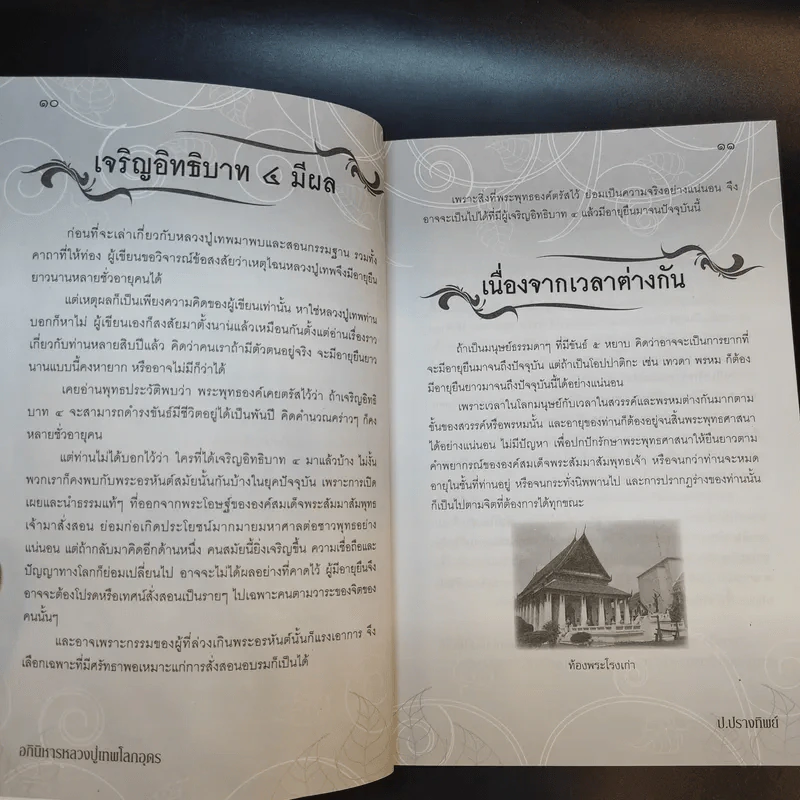 ๑๐
เจริญอิทธิบาท ๔ มีผล
ก่อนที่จะเล่าเกี่ยวกับหลวงปู่เทพมาพบและสอนกรรมฐาน รวมทั้ง
คาถาที่ให้ท่อง ผู้เขียนขอวิจารณ์ข้อสงสัยว่าเหตุไฉนหลวงปู่เทพจึงมีอายุยืน
ยาวนานหลายชั่วอายุคนได้
แต่เหตุผลก็เป็นเพียงความคิดของผู้เขียนเท่านั้น หาใช่หลวงปู่เทพท่าน
บอกก็หาไม่ ผู้เขียนเองก็สงสัยมาตั้งนานแล้วเหมือนกันตั้งแต่อ่านเรื่องราว
เกี่ยวกับท่านหลายสิบปีแล้ว คิดว่าคนเราถ้ามีตัวตนอยู่จริง จะมีอายุยืนยาว
นานแบบนี้คงหายาก หรืออาจไม่มีก็ว่าได้
เคยอ่านพุทธประวัติพบว่า พระพุทธองค์เคยตรัสไว้ว่า ถ้าเจริญอิทธิ
บาท ๔ จะสามารถดำรงขันธ์มีชีวิตอยู่ได้เป็นพันปี คิดคำนวณคร่าวๆ ก็คง
หลายชั่วอายุคน
แต่ท่านไม่ได้บอกไว้ว่า ใครที่ได้เจริญอิทธิบาท ๔ มาแล้วบ้าง ไม่งั้น
พวกเราก็คงพบกับพระอรหันต์สมัยนั้นกันบ้างในยุคปัจจุบัน เพราะการเปิด
เผยและนำธรรมแท้ๆ ที่ออกจากพระโอษฐ์ขององค์สมเด็จพระสัมมาสัมพุทธ
เจ้ามาสั่งสอน ย่อมก่อเกิดประโยชน์มากมายมหาศาลต่อชาวพุทธอย่าง
แน่นอน แต่ถ้ากลับมาคิดอีกด้านหนึ่ง คนสมัยนี้ยิ่งเจริญขึ้น ความเชื่อถือและ
ปัญญาทางโลกก็ย่อมเปลี่ยนไป อาจจะไม่ได้ผลอย่างที่คาดไว้ ผู้มีอายุยืนจึง
อาจจะต้องโปรดหรือเทศน์สั่งสอนเป็นรายๆ ไปเฉพาะคนตามวาระของจิตของ
คนนั้นๆ
และอาจเพราะกรรมของผู้ที่ล่วงเกินพระอรหันต์นั้นก็แรงเอาการ จึง
เลือกเฉพาะที่มีศรัทธาพอเหมาะแก่การสั่งสอนอบรมก็เป็นได้
อภินิหารหลวงปู่เทพโลกอุดร
๑๑
เพราะสิ่งที่พระพุทธองค์ตรัสไว้ ย่อมเป็นความจริงอย่างแน่นอน จึง
อาจจะเป็นไปได้ที่มีผู้เจริญอิทธิบาท ๔ แล้วมีอายุยืนมาจนปัจจุบันนี้
เนื่องจากเวลาต่างกัน
ถ้าเป็นมนุษย์ธรรมดาๆ ที่มีขันธ์ ๕ หยาบ คิดว่าอาจจะเป็นการยากที่
จะมีอายุยืนมาจนถึงปัจจุบัน แต่ถ้าเป็นโอปปาติกะ เช่น เทวดา พรหม ก็ต้อง
มีอายุยืนยาวมาจนถึงปัจจุบันนี้ได้อย่างแน่นอน
เพราะเวลาในโลกมนุษย์กับเวลาในสวรรค์และพรหมต่างกันมากตาม
ชั้นของสวรรค์หรือพรหมนั้น และอายุของท่านก็ต้องอยู่จนสิ้นพระพุทธศาสนา
ได้อย่างแน่นอน ไม่มีปัญหา เพื่อปกปักรักษาพระพุทธศาสนาให้ยืนยาวตาม
คำพยากรณ์ขององค์สมเด็จพระสัมมาสัมพุทธเจ้า หรือจนกว่าท่านจะหมด
อายุในชั้นที่ท่านอยู่ หรือจนกระทั่งนิพพานไป และการปรากฏร่างของท่านนั้น
ก็เป็นไปตามจิตที่ต้องการได้ทุกขณะ
ท้องพระโรงเก่า
ป.ปรางทิพย์